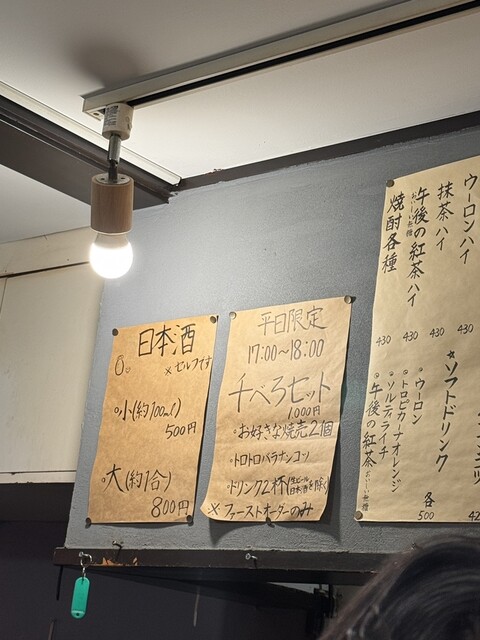 日本酒
※セルフです
・小(約100ml)
500円
・大(約1合)
800円
平日限定
17:00~18:00
千べろセット
1,000円
・お好きな焼売2個
・トロトロバラナンコツ
・ドリンク2杯(生ビール日本酒を除く)
※ファーストオーダーのみ
ウーロンハイ
430
抹茶ハイ
430
午後の紅茶ハイ
おいしい無糖
430
焼酎各種
430
★ソフトドリンク
・ウーロン
・トロピカーナオレンジ
・ソルティライチ
・午後の紅茶 おいしい無糖
各500